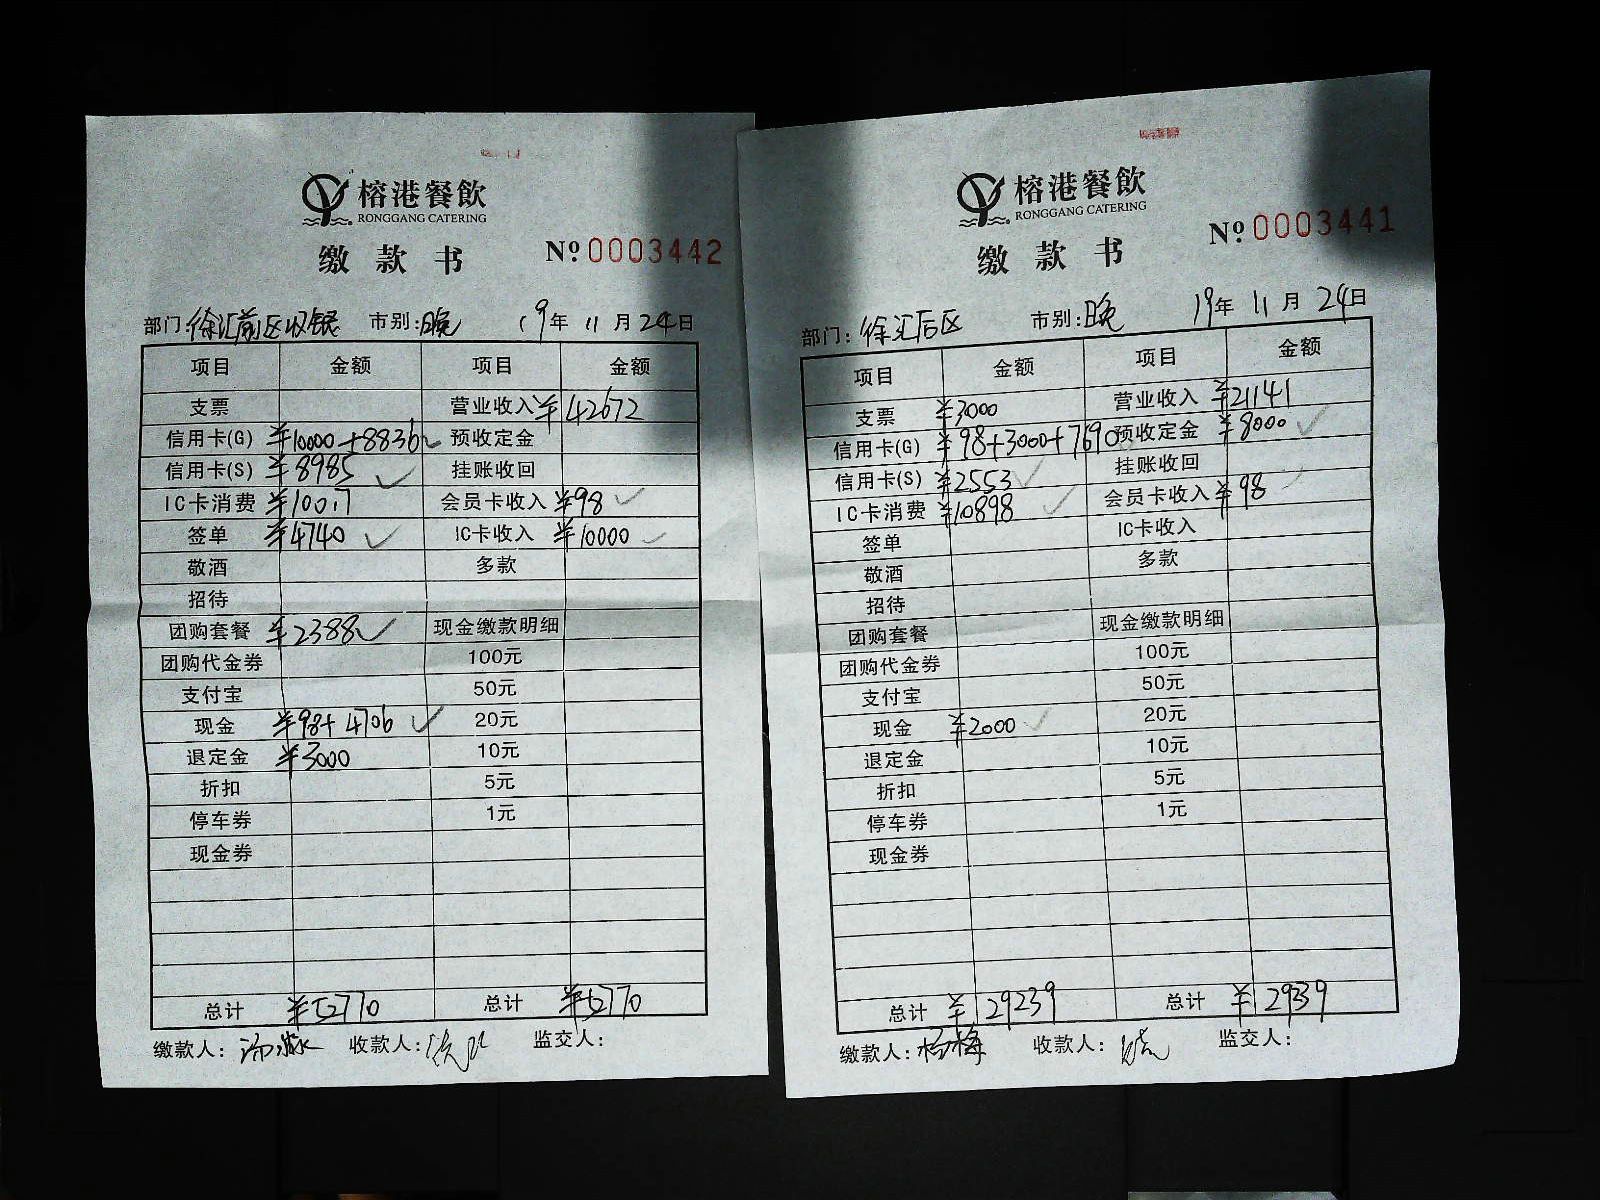 榕港餐飲
RONGGANG CATERING
缴款书 №0003442
部门:徐汇前区收银 市别:晚 19年 11月 24日
项目 金额 项目 金额
支票 营业收入 ¥42672
信用卡(G) ¥10000+8836 预收定金
信用卡(S) ¥8985 挂账收回
IC卡消费 ¥100.17 会员卡收入 ¥98
签单 ¥4740 IC卡收入 ¥10000
敬酒 多款
招待
团购套餐 ¥2388 现金缴款明细
团购代金券 100元
支付宝 50元
现金 ¥98+4706 20元
退定金 ¥3000 10元
折扣 5元
停车券 1元
现金券
总计 ¥52770 总计 ¥52770
缴款人: 收款人: 监交人:
榕港餐飲
RONGGANG CATERING
缴款书 №0003441
部门:徐汇后区 市别:晚 19年 11月 24日
项目 金额 项目 金额
支票 ¥3000 营业收入 ¥21141
信用卡(G) ¥98+3000+7690 预收定金 ¥8000
信用卡(S) ¥2553 挂账收回
IC卡消费 ¥10898 会员卡收入 ¥98
签单 IC卡收入
敬酒 多款
招待
团购套餐 现金缴款明细
团购代金券 100元
支付宝 50元
现金 ¥2000 20元
退定金 10元
折扣 5元
停车券 1元
现金券
总计 ¥29239 总计 ¥2939
缴款人:杨梅 收款人: 监交人: